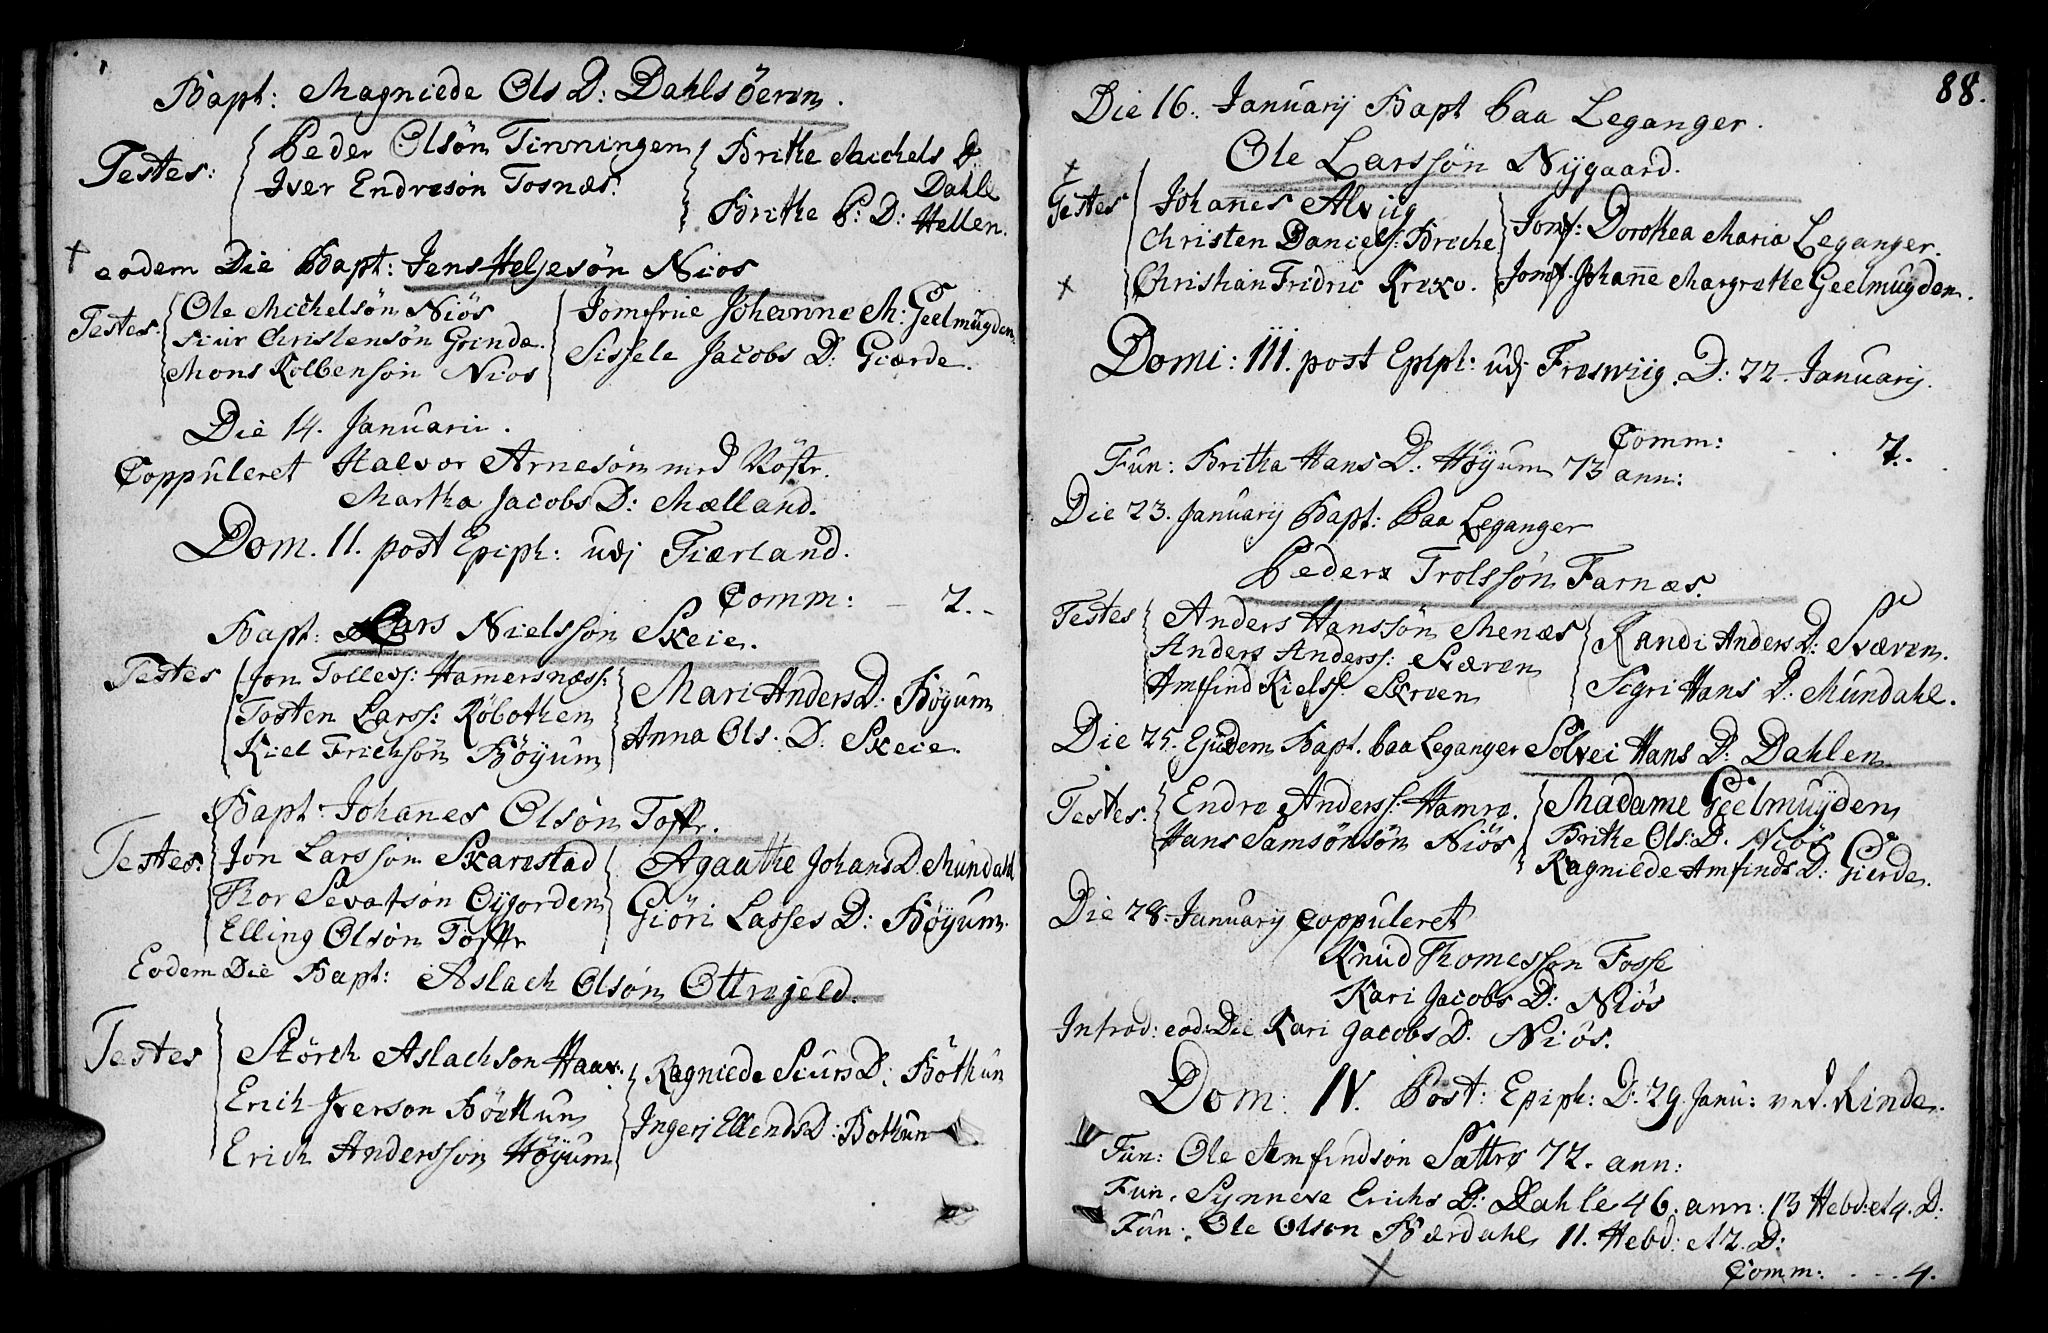 Bapt: Magniede Ols D: Dahlsöeren.
Testes: Peder Olsön Tinningen
Iver Endresön Tosnæs.
Brithe Michels D
Dahle
Brithe P: D: Hellen.
eodem Die Bapt: Jens Heljesön Nios
Testes: Ole Michelsön Niös
Siur Christensön Grinde.
Mons Kolbensön Nios
Jomfrue Johanne M: Geelmuyden
Sissele Jacobs D: Giærde.
Die 14. Januarii.
Coppuleret Halvor Arnesön med
Martha Jacobs D: Mælland.
Dom. II. post Epiph: udj Fiærland.
Comm: - 2. -
Bapt: Lars Nielssön Skeie.
Testes Jon Tolless: Hamersnæss:
Tosten Larss: Röbothen
Kiel Frichsön Böyum
Mari Anders D: Böyum
Anna Ols. D: Skeie.
Bapt: Johanes Olsön Toftr.
Testes. Jon Larssön Skarestad
Thor Sevatsön Öygorden
Elling Olsön Toftr
Agaathe Johans D. Mundahl
Giöri Lasses D: Böyum.
Eodem Die Bapt: Aslach Olsön Ottrejeld.
Testes Störch Aslachson Haav:
Erich Iverson Böthun
Erich Andersson Höyum
Ragniede Siurs D: Böthun
Ingerj Ellends D: Bothun
88.
Die 16. Januarij Bapt Paa Leganger.
Ole Larssön Nÿgaard.
Testes Johanes Alviig
Christen Daniels: Breche
Christian Fridric Krexo.
Jomf: Dorothea Maria Leganger.
Jomf. Johane Margrethe Geelmuyden.
Domi: III. post Epiph: udj Freswiig. D: 22. Januarij.
Comm: . . 7.
Fun: Britha Hans D: Höyum 73 ann:
Die 23. Januarij Bapt: Paa Leganger
Peder Trolssön Farnæs.
Testes Anders Hanssön Menæs
Anders Anderss: Sværen
Amfind Kielss: Sæven
Randi Anders D: Sværen.
Sigri Hans D: Mundahl.
Die 25. Ejusdem Bapt. Paa Leganger Solvei Hans D: Dahlen
Testes: Endre Anderss: Hamre.
Hans Samsönsön Niös
Madame Geelmuyden
Brithe Ols: D. Niös
Ragniede Amfinds D: Gierde.
Die 28. Januarij Coppuleret
Knud Thomesson Fosse
Kari Jacobs D: Niös
Introd: eod: Die Kari Jacobs D. Niös.
Dom: IV. Post: Epiph: D. 29. Janu: ved. Rinde.
Fun: Ole Amfindsön Sættre 72. ann:
Fun. Synneve Erichs D: Dahle 46. ann: 13 Hebd: et 4. D:
Fun: Ole Olson Bærdahl 11. Hebd: et 2. D:
Comm: . - - 4.